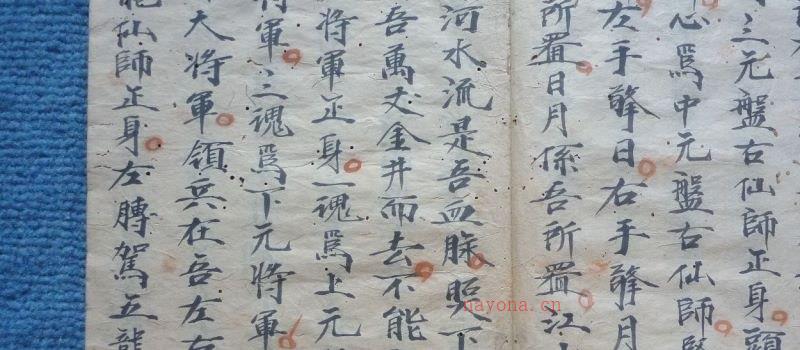 三元盤古仙師正身頭
心爲中元盤古仙師
左手擎日右手擎月
所置日月係吾所置江
河水流是吾血脉照下
吾萬丈金井而去不能
將軍正身一魂爲上元
將軍三魂爲下元將軍
大將軍領兵在吾左右
仙師正身左膊駕五龍
nayona.cn